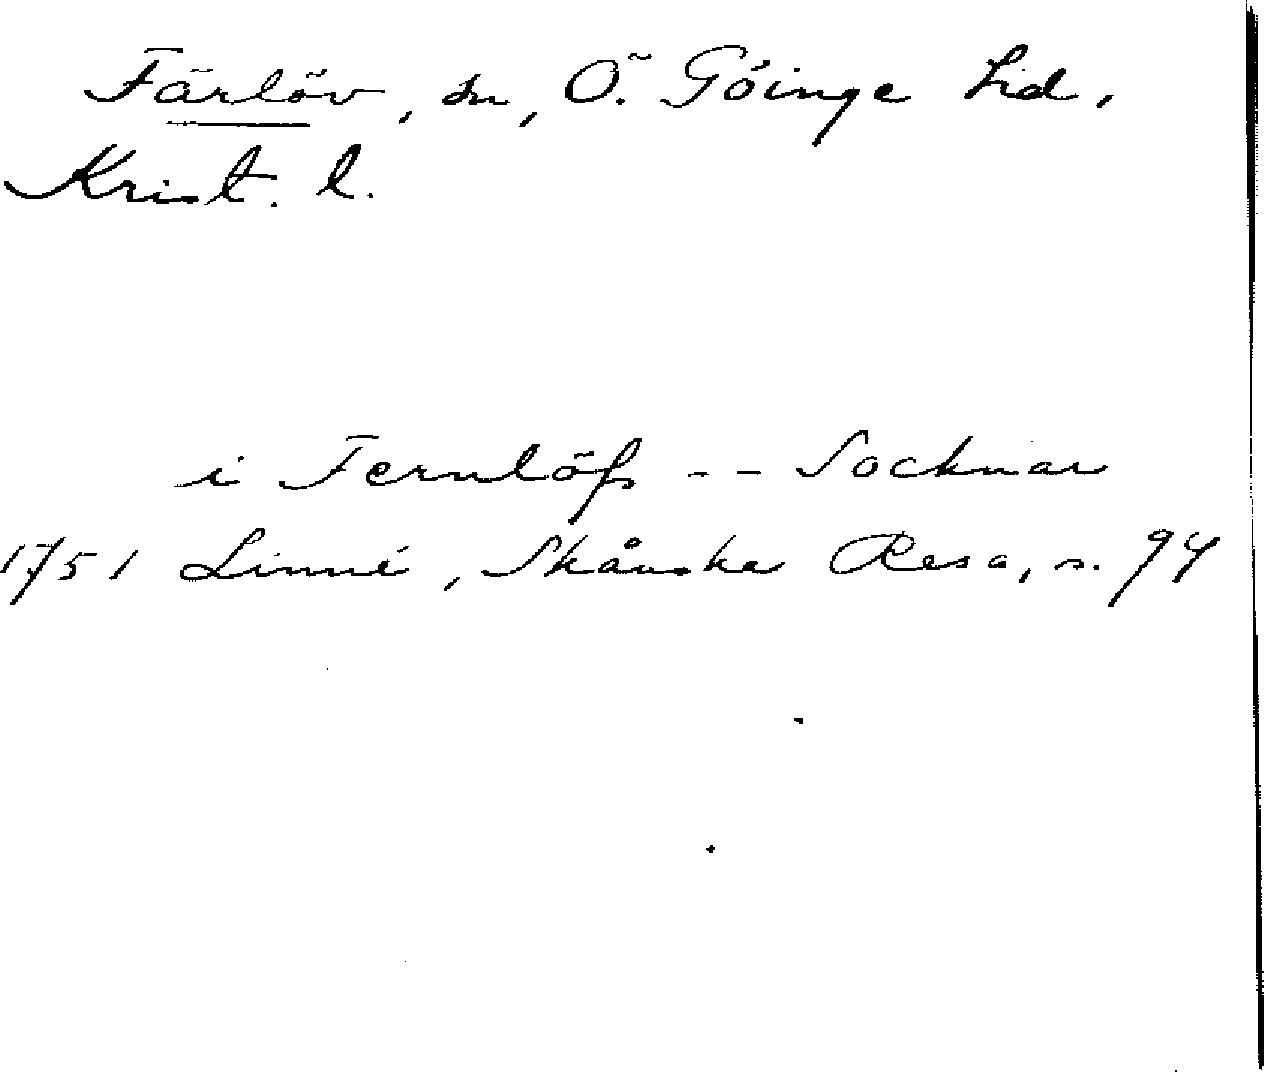 Färlöv, sn, Ö. Göinge hd,
Krist. l.
i Fernlöfs -- Socknar
1751 Linné, Skånska Resa, s. 94